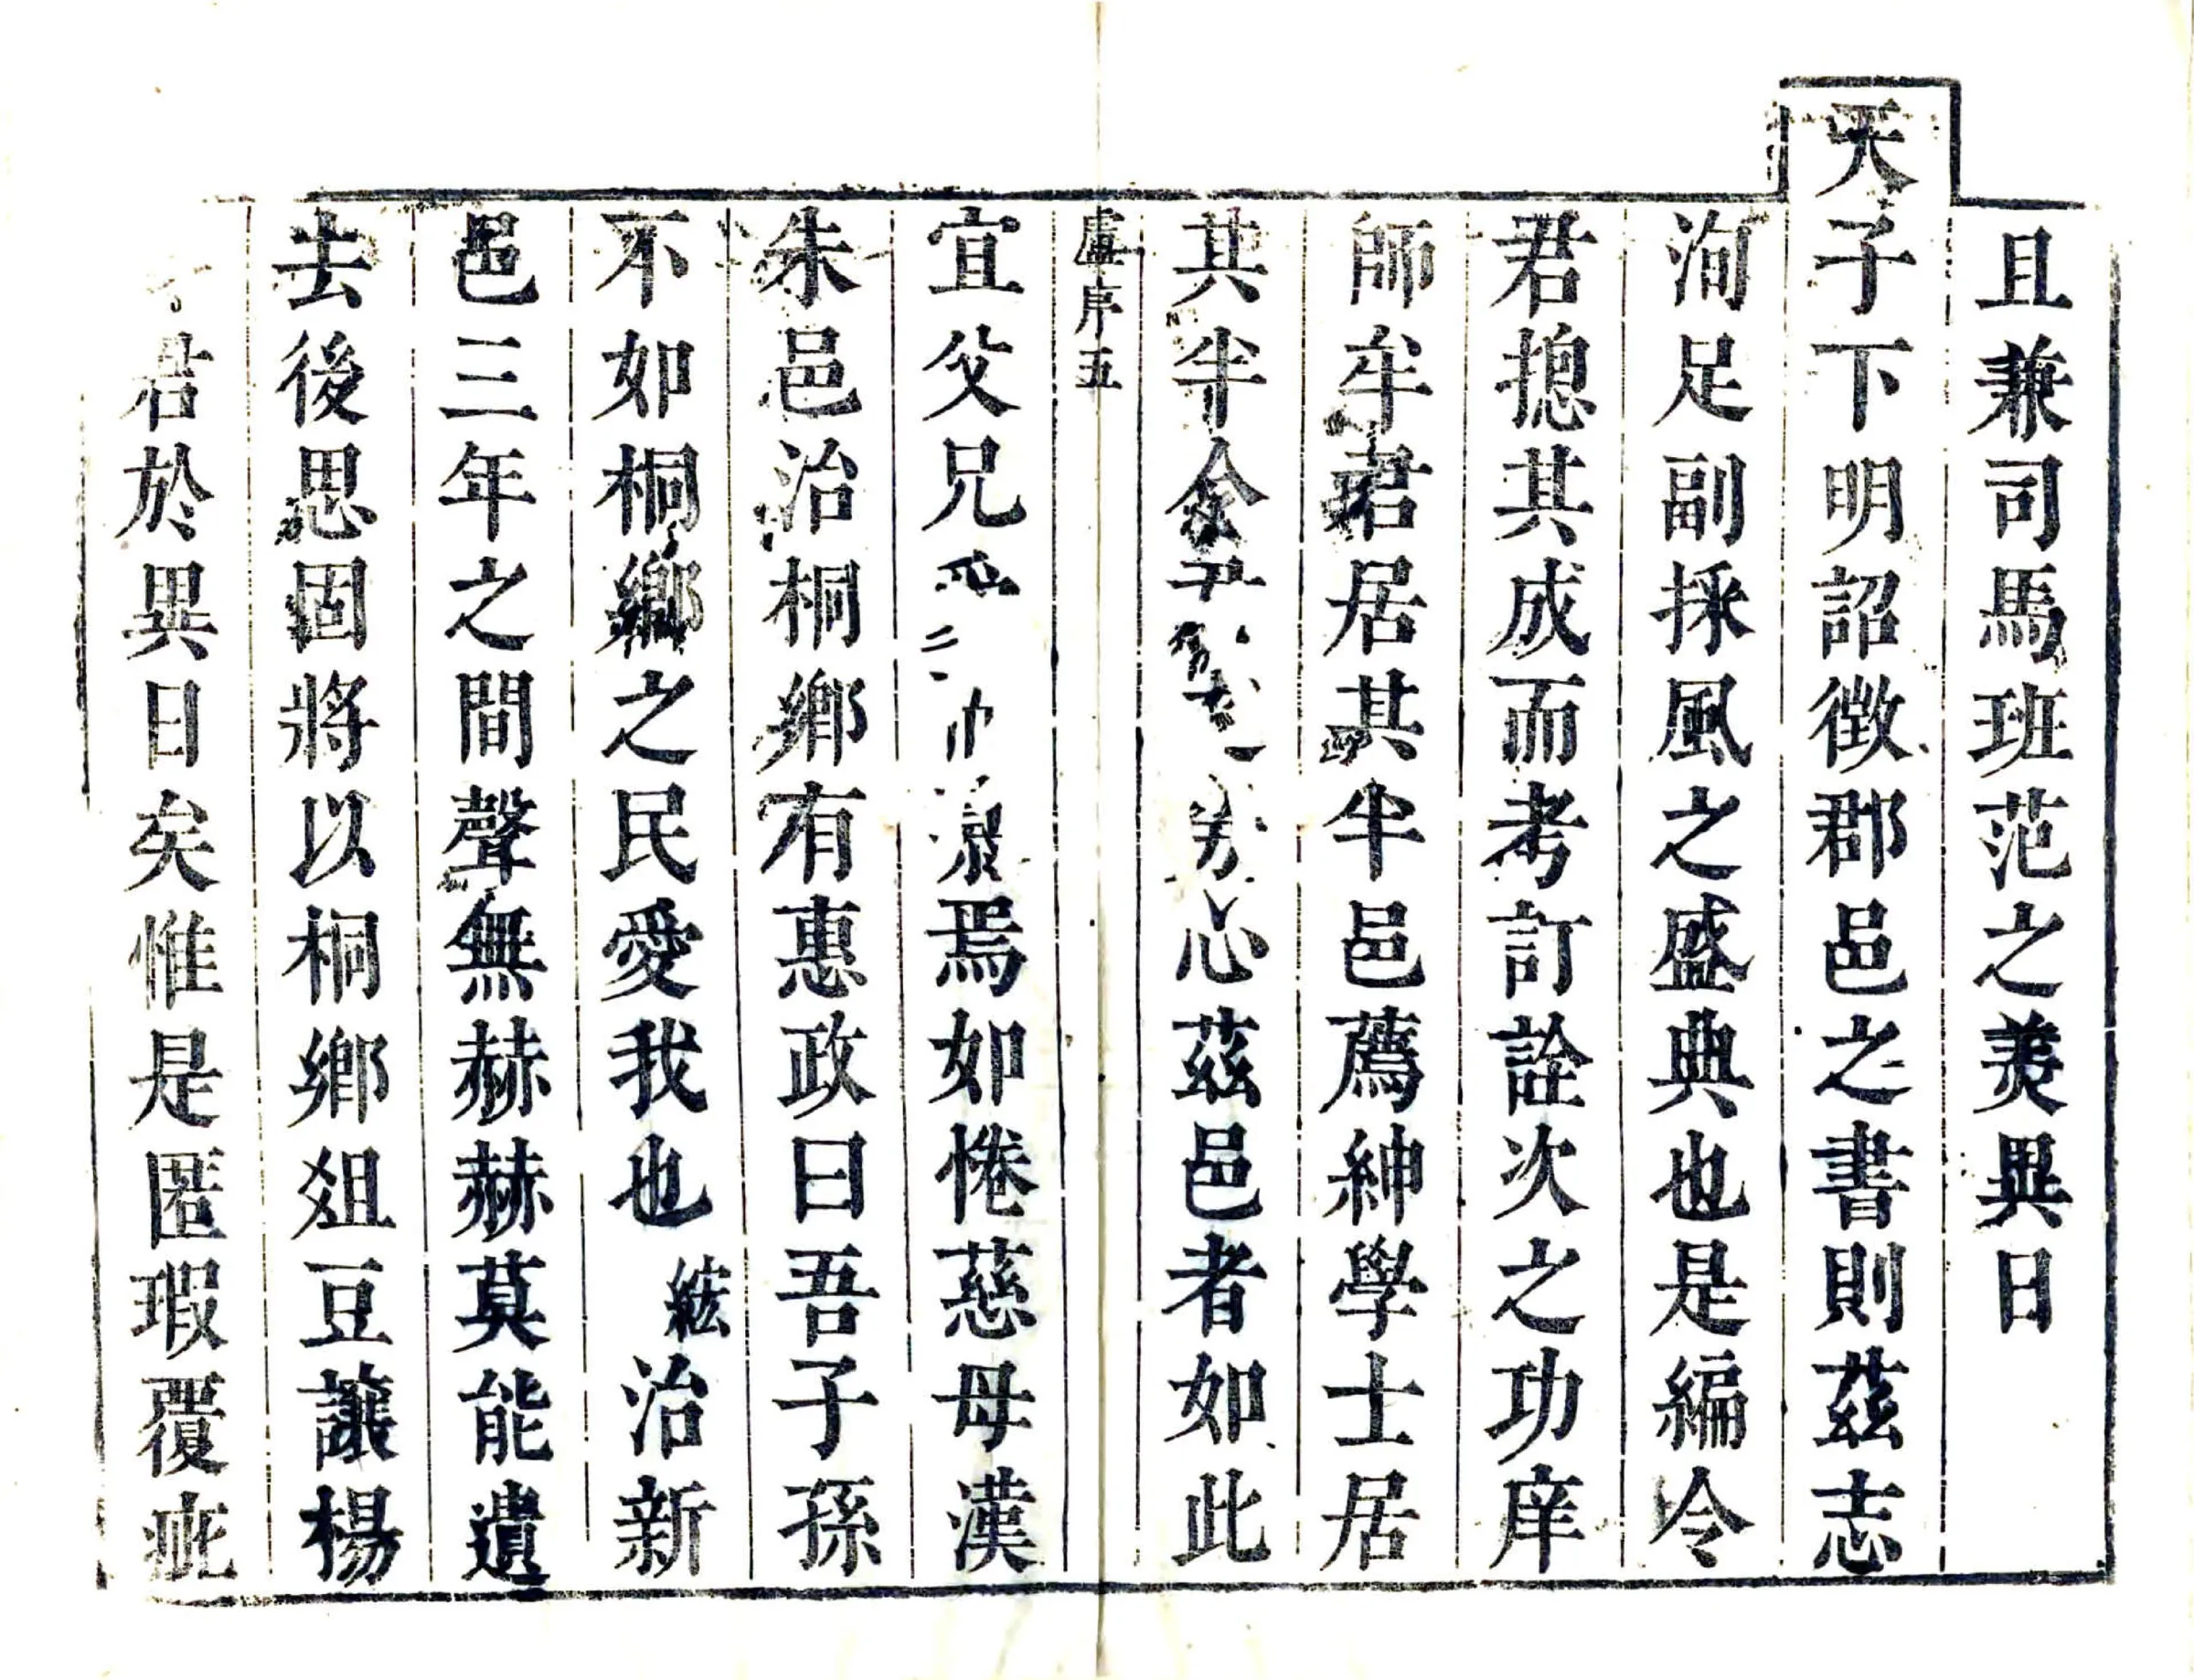 且兼司馬班范之美異日
天子下明詔徴郡邑之書則茲志
洵足副採風之盛典也是編令
君揔其成而考訂詮次之功庠
師牟君居其半邑薦紳學士居
其半余心茲邑者如此
盧序五
宜父兄焉如惓慈母漢
朱邑治桐鄉有惠政曰吾子孫
不如桐鄉之民愛我也紘治新
邑三年之間聲無赫赫莫能遺
去後思固將以桐鄉俎豆讓楊
君於異日矣惟是匿瑕覆疵